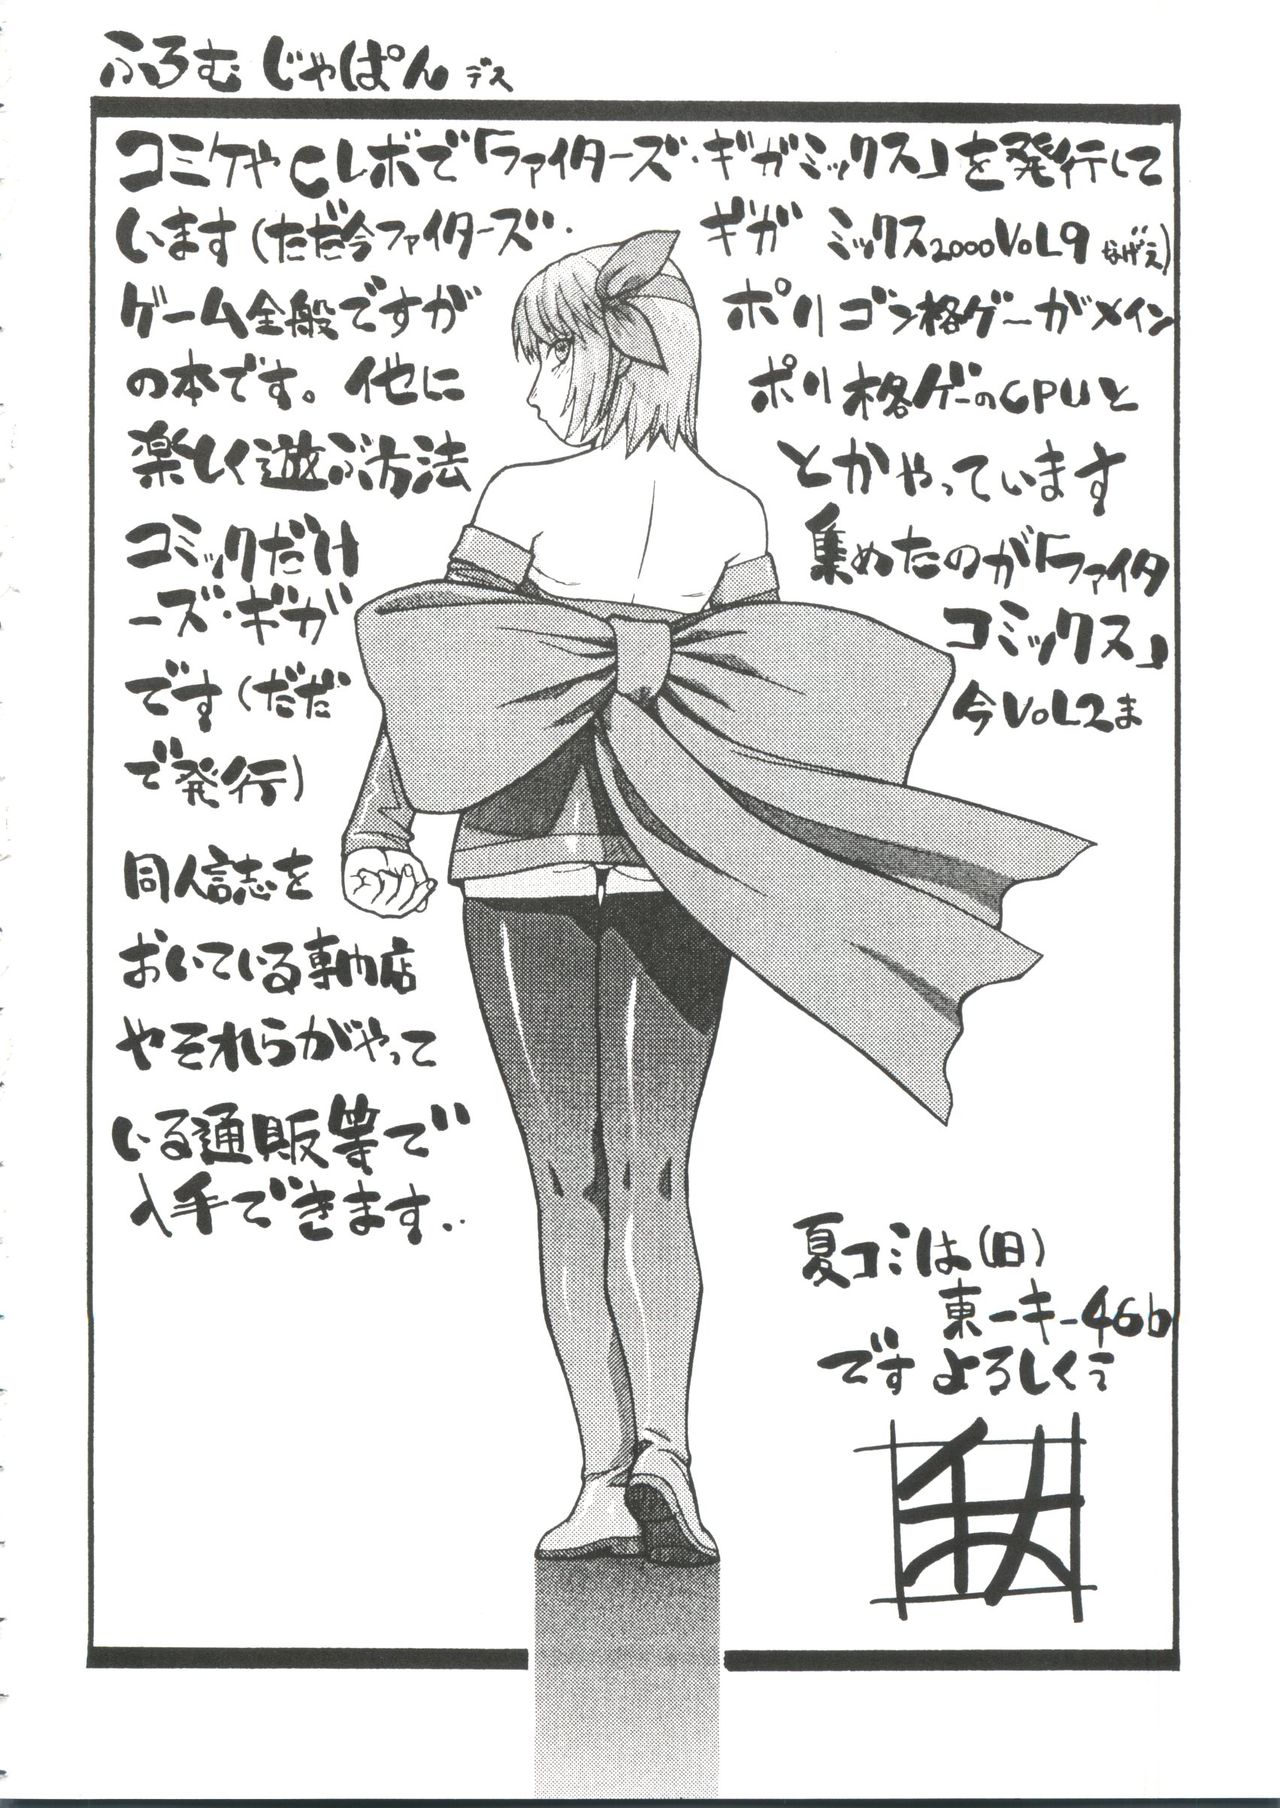 ふろむじゃぱんデス
コミケやCレボで「ファイターズ・ギガミックス」を発行して
います(ただ今ファイターズ・ギガミックス2000VoL9なげえ)
ゲーム全般ですがポリゴン格ゲーがメイン
の本です。他にポリ格ゲーのCPUと
楽しく遊ぶ方法とかやっています
コミックだけ集めたのが「ファイタ
ーズ・ギガコミックス」
です(ただ今VoL2ま
で発行)
同人誌を
おいている専門店
やそれらがやって
いる通販等で
入手できます.
夏コミは(日)
東ーキー46b
ですよろしくう